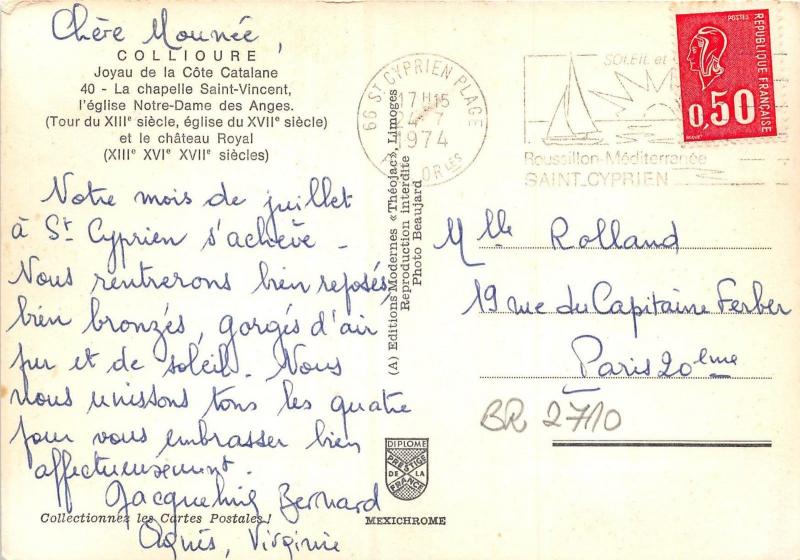 Chère Mounée,
COLLIOURE
Joyau de la Côte Catalane
40 - La chapelle Saint-Vincent,
l'église Notre-Dame des Anges.
(Tour du XIIIe siècle, église du XVIIe siècle)
et le château Royal
(XIIIe XVIe XVIIe siècles)
Notre mois de juillet
à St Cyprien s'achève -
Nous rentrerons bien reposés,
bien bronzés, gorgés d'air
pur et de soleil. Nous
nous unissons tous les quatre
pour vous embrasser bien
affectueusement.
Jacqueline Bernard
Collectionnez les Cartes Postales !
Agnès, Virginie
(A) Editions Modernes « Théojac », Limoges
Reproduction interdite
Photo Beaujard
DIPLOME
PRESTIGE
DE LA
FRANCE
MEXICHROME
66 ST CYPRIEN PLAGE
17 H 15
24-7
1974
SOLEIL et
Roussillon-Méditerranée
SAINT CYPRIEN
POSTES
REPUBLIQUE FRANÇAISE
0,50
Mlle Rolland
19 rue du Capitaine Ferber
Paris 20ième
BR 2710